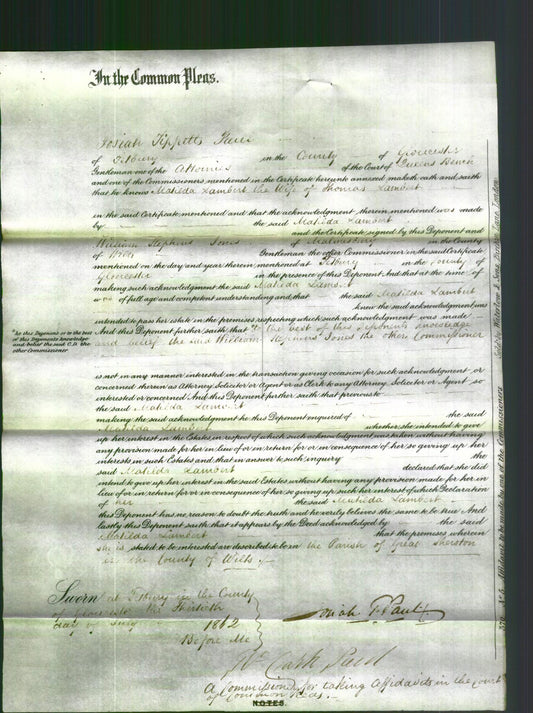 In the Common Pleas.
Josiah Tippetts Paul
of Tetbury in the County of Gloucester
Gentleman one of the Attornies of the Court of Queens Bench
and one of the Commissioners mentioned in the Certificate hereunto annexed maketh oath and saith
that he knows Matilda Lambert the Wife of Thomas Lambert
in the said Certificate mentioned and that the acknowledgment therein mentioned was made
by the said Matilda Lambert
and the Certificate signed by this Deponent and
William Stephens Jones of Malmesbury in the County
of Wilts Gentleman the other Commissioner in the said Certificate
mentioned on the day and year therein mentioned at Tetbury in the County of
Gloucester in the presence of this Deponent And that at the time of
making such acknowledgment the said Matilda Lambert
was of full age and competent understanding and that the said Matilda Lambert
knew the said acknowledgment was
intended to pass her estate in the premises respecting which such acknowledgment was made
And this Deponent further saith that to the best of this Deponents knowledge
and belief the said William Stephens Jones the other Commissioner
*As this Deponent or to the best
of this Deponents knowledge
and belief the said C.D. the
other Commissioner
is not in any manner interested in the transaction giving occasion for such acknowledgment or
concerned therein as Attorney Solicitor or Agent or as Clerk to any Attorney Solicitor or Agent so
interested or concerned And this Deponent further saith that previous to
the said Matilda Lambert
making the said acknowledgment he this Deponent enquired of the said
Matilda Lambert whether she intended to give
up her interest in the Estates in respect of which such acknowledgment was taken without having
any provision made for her in lieu of or in return for or in consequence of her so giving up her
interests in such Estates and that in answer to such inquiry the
said Matilda Lambert declared that she did
intend to give up her interest in the said Estates without having any provision made for her in
lieu of or in return for or in consequence of her so giving up such her interest of which Declaration
of her the said Matilda Lambert
this Deponent has no reason to doubt the truth and he verily believes the same to be true And
lastly this Deponent saith that it appears by the Deed acknowledged by the said
Matilda Lambert that the premises wherein
she is stated to be interested are described to be in the Parish of Great Sherston
in the County of Wilts.
Sworn at Tetbury in the County
of Gloucester this Thirtieth
day of July 1862
Before Me
Josiah T. Paul
A Commissioner for taking Affidavits in the Court
of Common Pleas.
NOTES.